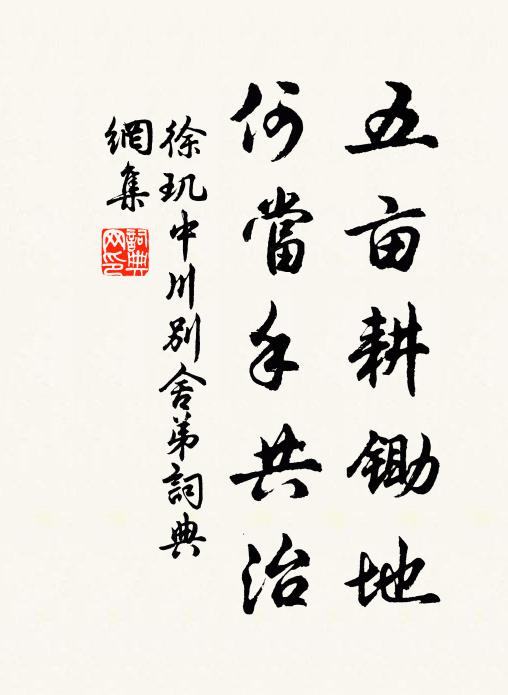 五亩耕锄地
何當手共治
徐玑中川别舍弟詞典
網集
詞典网印